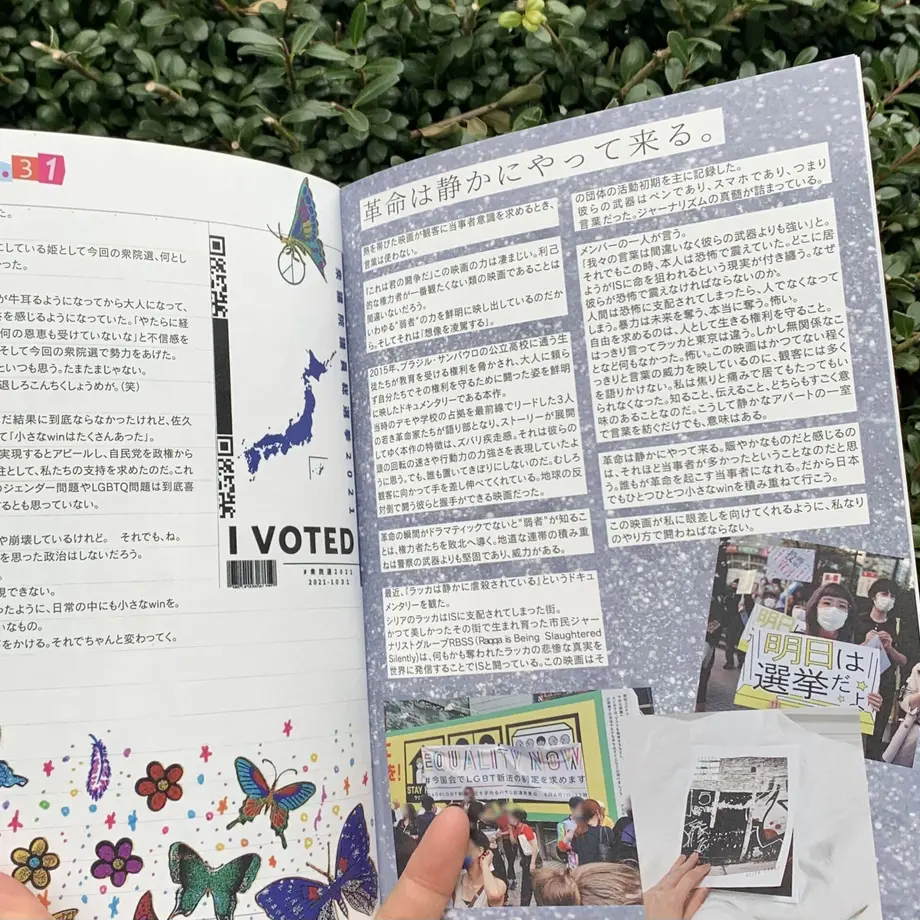 .31
た。
にしている姫として今回の衆院選、何とし
かった。
が牛耳るようになってから大人になって、
を感じるようになっていた。「やたらに経
何の恩恵も受けていないな」と不信感を
そして今回の衆院選で勢力をあげた。
といつも思う。たまたまじゃない。
退しろこんちくしょうめが。(笑)
だ結果に到底ならなかったけれど、佐久
て「小さなwinはたくさんあった」。
実現するとアピールし、自民党を政権から
柱として、私たちの支持を求めたのだ。これ
のジェンダー問題やLGBTQ問題は到底喜
るとも思っていない。
や崩壊しているけれど。 それでも、ね。
を思った政治はしないだろう。
現できない。
ったように、日常の中にも小さなwinを。
いなもの。
をかける。それでちゃんと変わってく。
衆議院議員総選挙2021
I VOTED
#衆院選2021
2021-1031
革命は静かにやって来る。
熱を帯びた映画が観客に当事者意識を求めるとき、
言葉は使わない。
「これは君の闘争だ」この映画の力は凄まじい。利己
的な権力者が一番観たくない類の映画であることは
間違いないだろう。
いわゆる“弱者”の力を鮮明に映し出しているのだか
ら。そしてそれは「想像を凌駕する」。
2015年、ブラジル・サンパウロの公立高校に通う生
徒たちが教育を受ける権利を脅かされ、大人に頼ら
ず自分たちでその権利を守るために闘った姿を鮮明
に映したドキュメンタリーである本作。
当時のデモや学校の占拠を最前線でリードした3人
の若き革命家たちが語り部となり、ストーリーが展開
してゆく本作の特徴は、ズバリ疾走感。それは彼らの
頭の回転の速さや行動力の力強さを表現していたよ
うに思う。でも、誰も置いてきぼりにしないのだ。むしろ
観客に向かって手を差し伸べてくれている。地球の反
対側で闘う彼らと握手ができる映画だった。
革命の瞬間がドラマティックでないと“弱者”が知るこ
とは、権力者たちを敗北へ導く。地道な連帯の積み重
ねは警察の武器よりも堅固であり、威力がある。
最近、「ラッカは静かに虐殺されている」というドキュ
メンタリーを観た。
シリアのラッカはISに支配されてしまった街。
かつて美しかったその街で生まれ育った市民ジャー
ナリストグループRBSS(Raqqa is Being Slaughtered
Silently)は、何もかも奪われたラッカの悲惨な真実を
世界に発信することでISと闘っている。この映画はそ
の団体の活動初期を主に記録した。
彼らの武器はペンであり、スマホであり、つまり
言葉だった。ジャーナリズムの真髄が詰まっている。
メンバーの一人が言う。
「我々の言葉は間違いなく彼らの武器よりも強い」と。
それでもこの時、本人は恐怖で震えていた。どこに居
ようがISに命を狙われるという現実が付き纏う。なぜ
彼らが恐怖で震えなければならないのか。
人間は恐怖に支配されてしまったら、人でなくなって
しまう。暴力は未来を奪う、本当に奪う。怖い。
自由を求めるのは、人として生きる権利を守ること。
はっきり言ってラッカと東京は違う。しかし無関係なこ
となど何もなかった。怖い。この映画はかつてない程く
っきりと言葉の威力を映しているのに、観客には多く
を語りかけない。私は焦りと痛みで居てもたってもい
られなくなった。知ること、伝えること、どちらもすごく意
味のあることなのだ。こうして静かなアパートの一室
で言葉を紡ぐだけでも、意味はある。
革命は静かにやって来る。賑やかなものだと感じるの
は、それほど当事者が多かったということなのだと思
う。誰もが革命を起こす当事者になれる。だから日本
でもひとつひとつ小さなwinを積み重ねて行こう。
この映画が私に眼差しを向けてくれるように、私なり
のやり方で闘わねばならない。
明日は
選挙だよ
EQUALITY NOW
#今国会でLGBT新法の制定を求めます
STAY